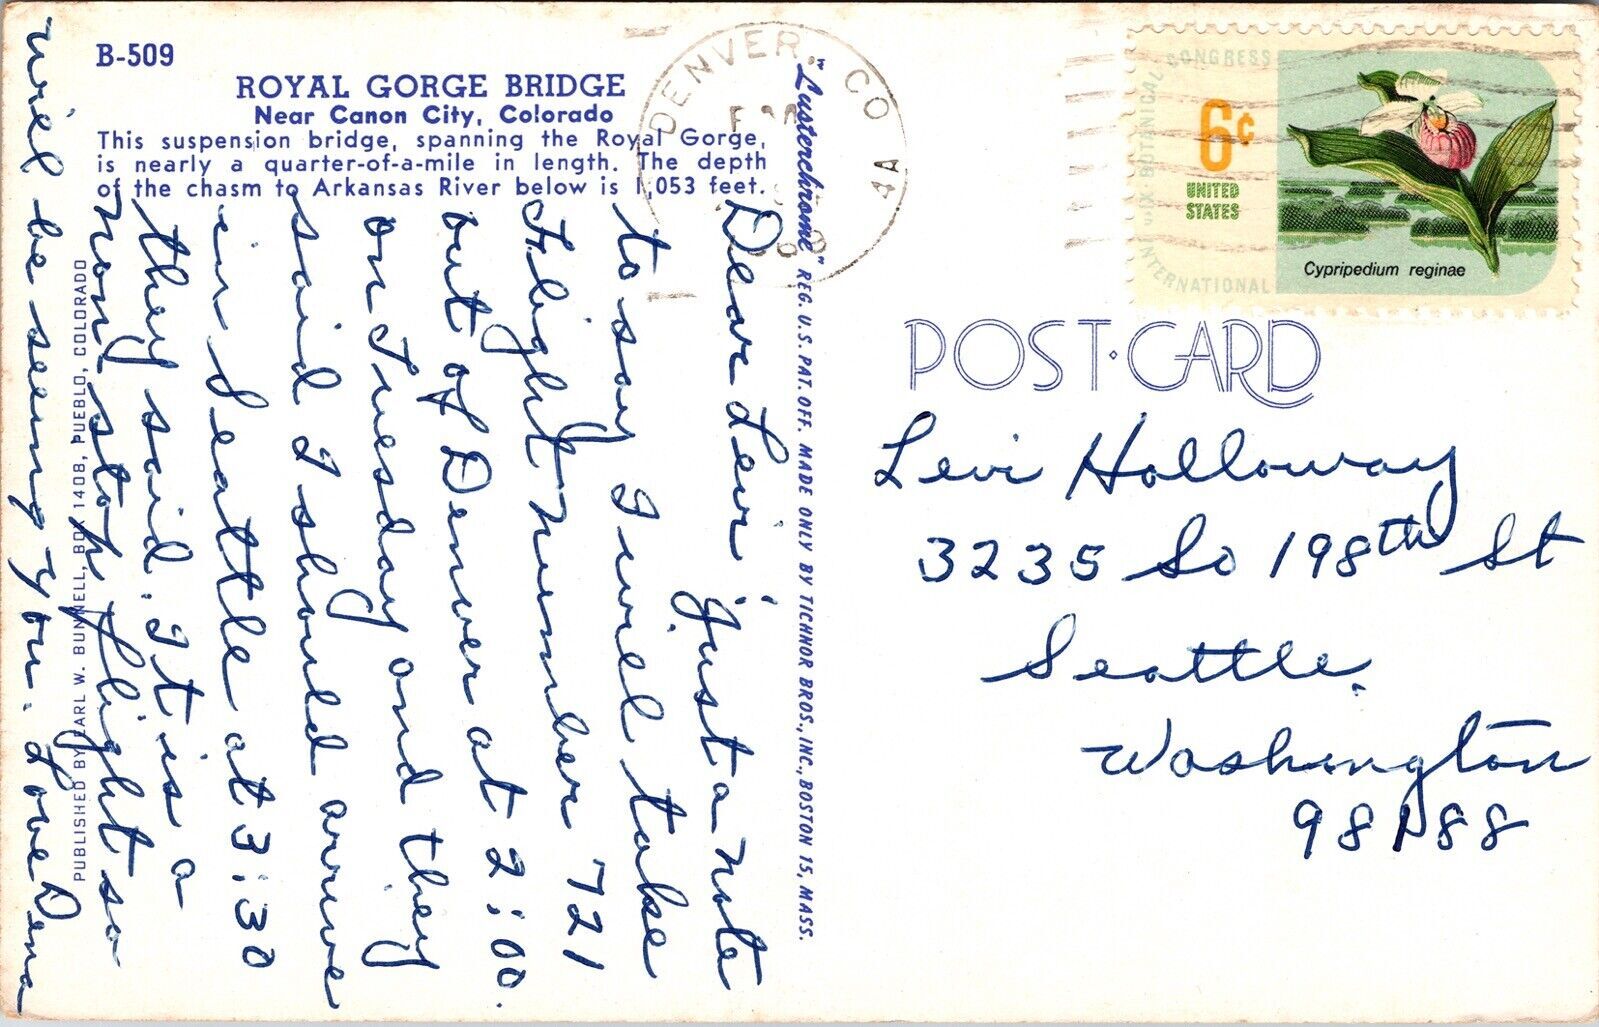 B-509
ROYAL GORGE BRIDGE
Near Canon City, Colorado
This suspension bridge, spanning the Royal Gorge,
is nearly a quarter-of-a-mile in length. The depth
of the chasm to Arkansas River below is 1,053 feet.
Dear Levi: Just a note
to say I will take
Flight Number 721
out of Denver at 2:00.
on Tuesday and they
said I should arrive
in Seattle at 3:30
they said. It is a
Non stop flight so
will be seeing you. Love Dena
PUBLISHED BY EARL W. BUNNELL, BOX 1408, PUEBLO, COLORADO
"Lusterchrome" REG. U.S. PAT. OFF. MADE ONLY BY TICHNOR BROS., INC., BOSTON 15, MASS.
DENVER, CO
XI INTERNATIONAL BOTANICAL CONGRESS
6c
UNITED
STATES
Cypripedium reginae
POST·CARD
Levi Holloway
3235 So 198th St
Seattle.
Washington
98188